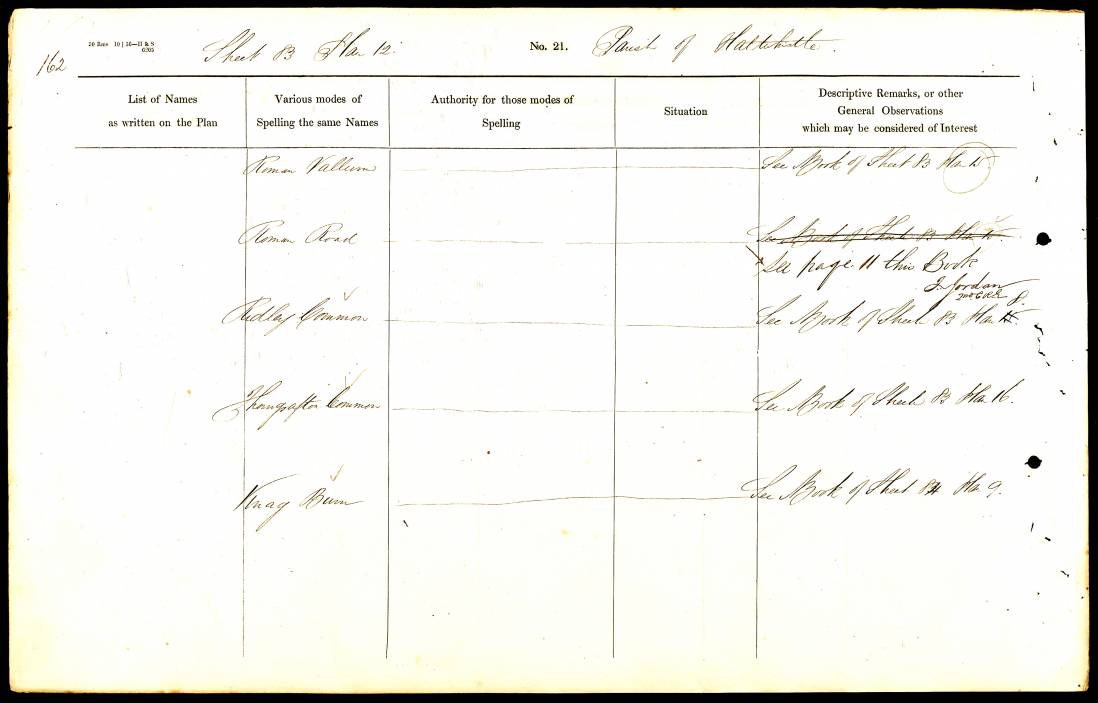 162
20 Rms 10 | 56—H & S
6205
Sheet 83 Plan 12.
No. 21.
Parish of Haltwhistle.
List of Names
as written on the Plan
Various modes of
Spelling the same Names
Authority for those modes of
Spelling
Situation
Descriptive Remarks, or other
General Observations
which may be considered of Interest
Roman Vallum
See Book of Sheet 83 Plan
Roman Road
See Book of Sheet 83 Plan
See page 11 this Book
J. Jordan
Ridley Common
See Book of Sheet 83 Plan 8.
Thorngrafton Common
See Book of Sheet 83 Plan 16.
Knag Burn
See Book of Sheet 84 Plan 9.